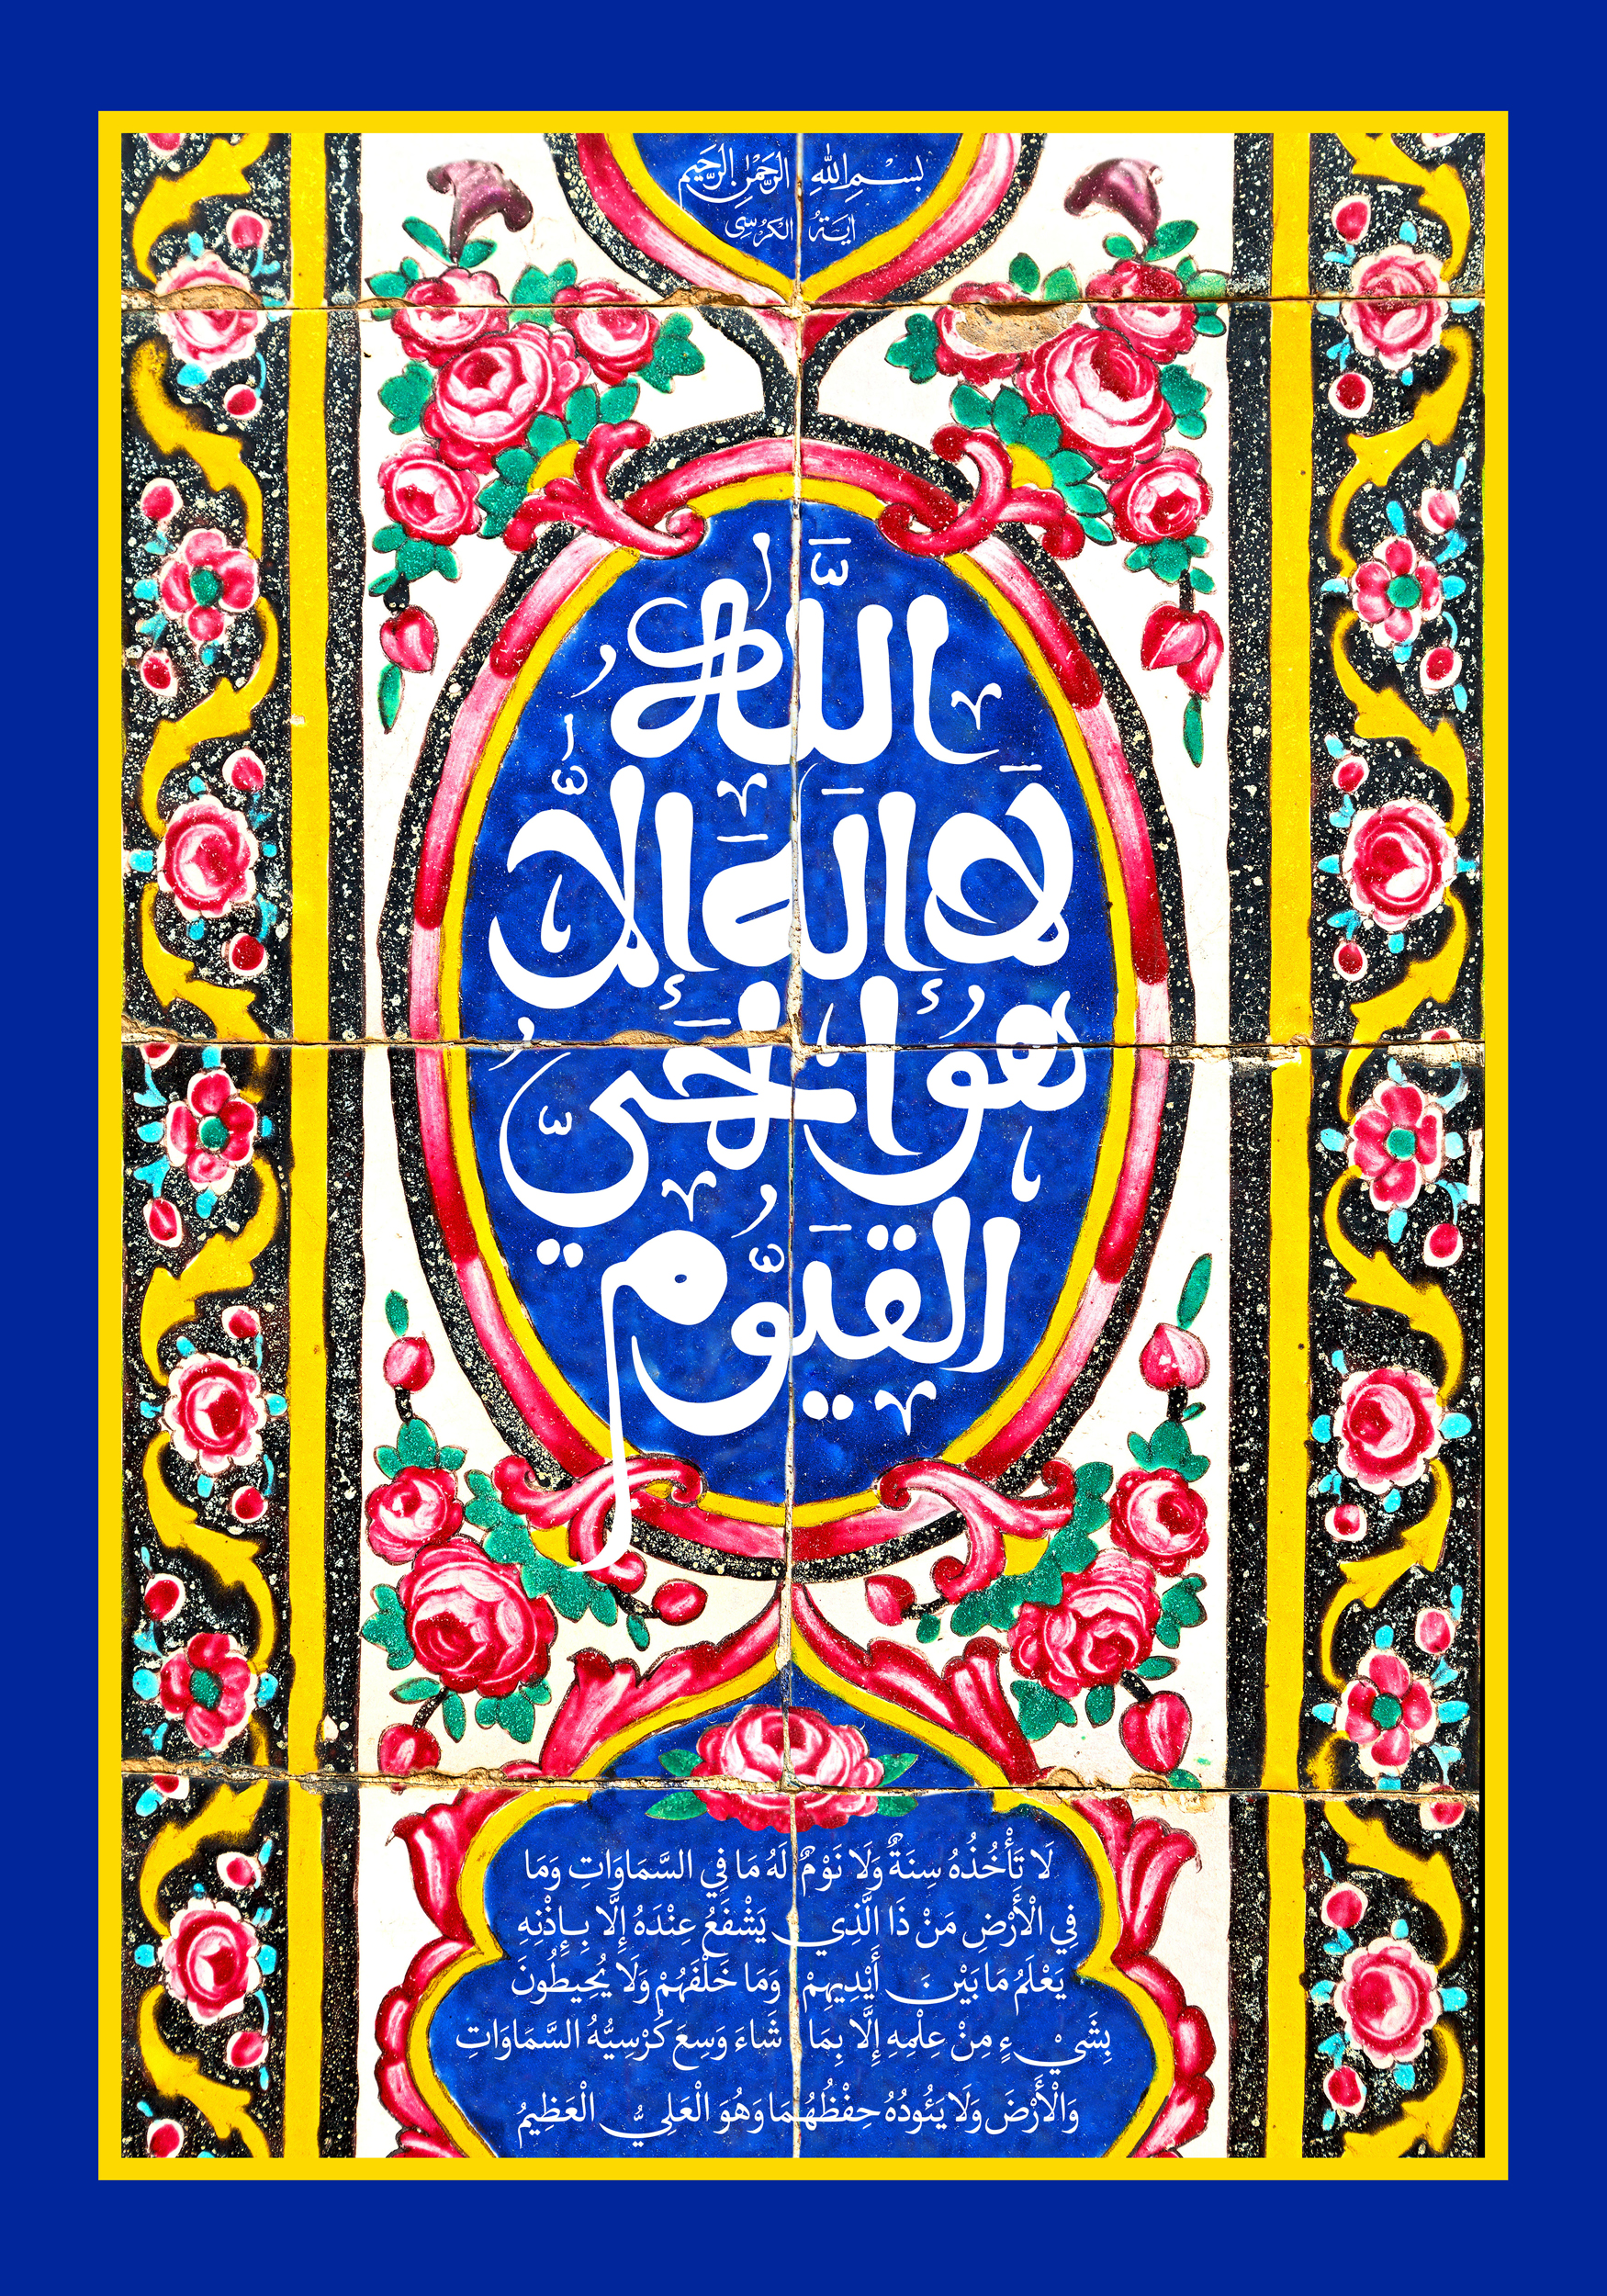 بِسْمِ اللهِ الرَّحْمٰنِ الرَّحَيم
ايَةُ الكُرْسِى
اللَّهُ
لَا إِلَهَ إِلَّا
هُوَ الحَيُّ
القَيُّوم
لَا تَأْخُذُهُ سِنَةٌ وَلَا نَوْمٌ لَهُ مَا فِي السَّمَاوَاتِ وَمَا
فِي الْأَرْضِ مَنْ ذَا الَّذِي يَشْفَعُ عِنْدَهُ إِلَّا بِإِذْنِهِ
يَعْلَمُ مَا بَيْنَ أَيْدِيهِمْ وَمَا خَلْفَهُمْ وَلَا يُحِيطُونَ
بِشَيْءٍ مِنْ عِلْمِهِ إِلَّا بِمَا شَاءَ وَسِعَ كُرْسِيُّهُ السَّمَاوَاتِ
وَالْأَرْضَ وَلَا يَئُودُهُ حِفْظُهُمَا وَهُوَ الْعَلِيُّ الْعَظِيمُ